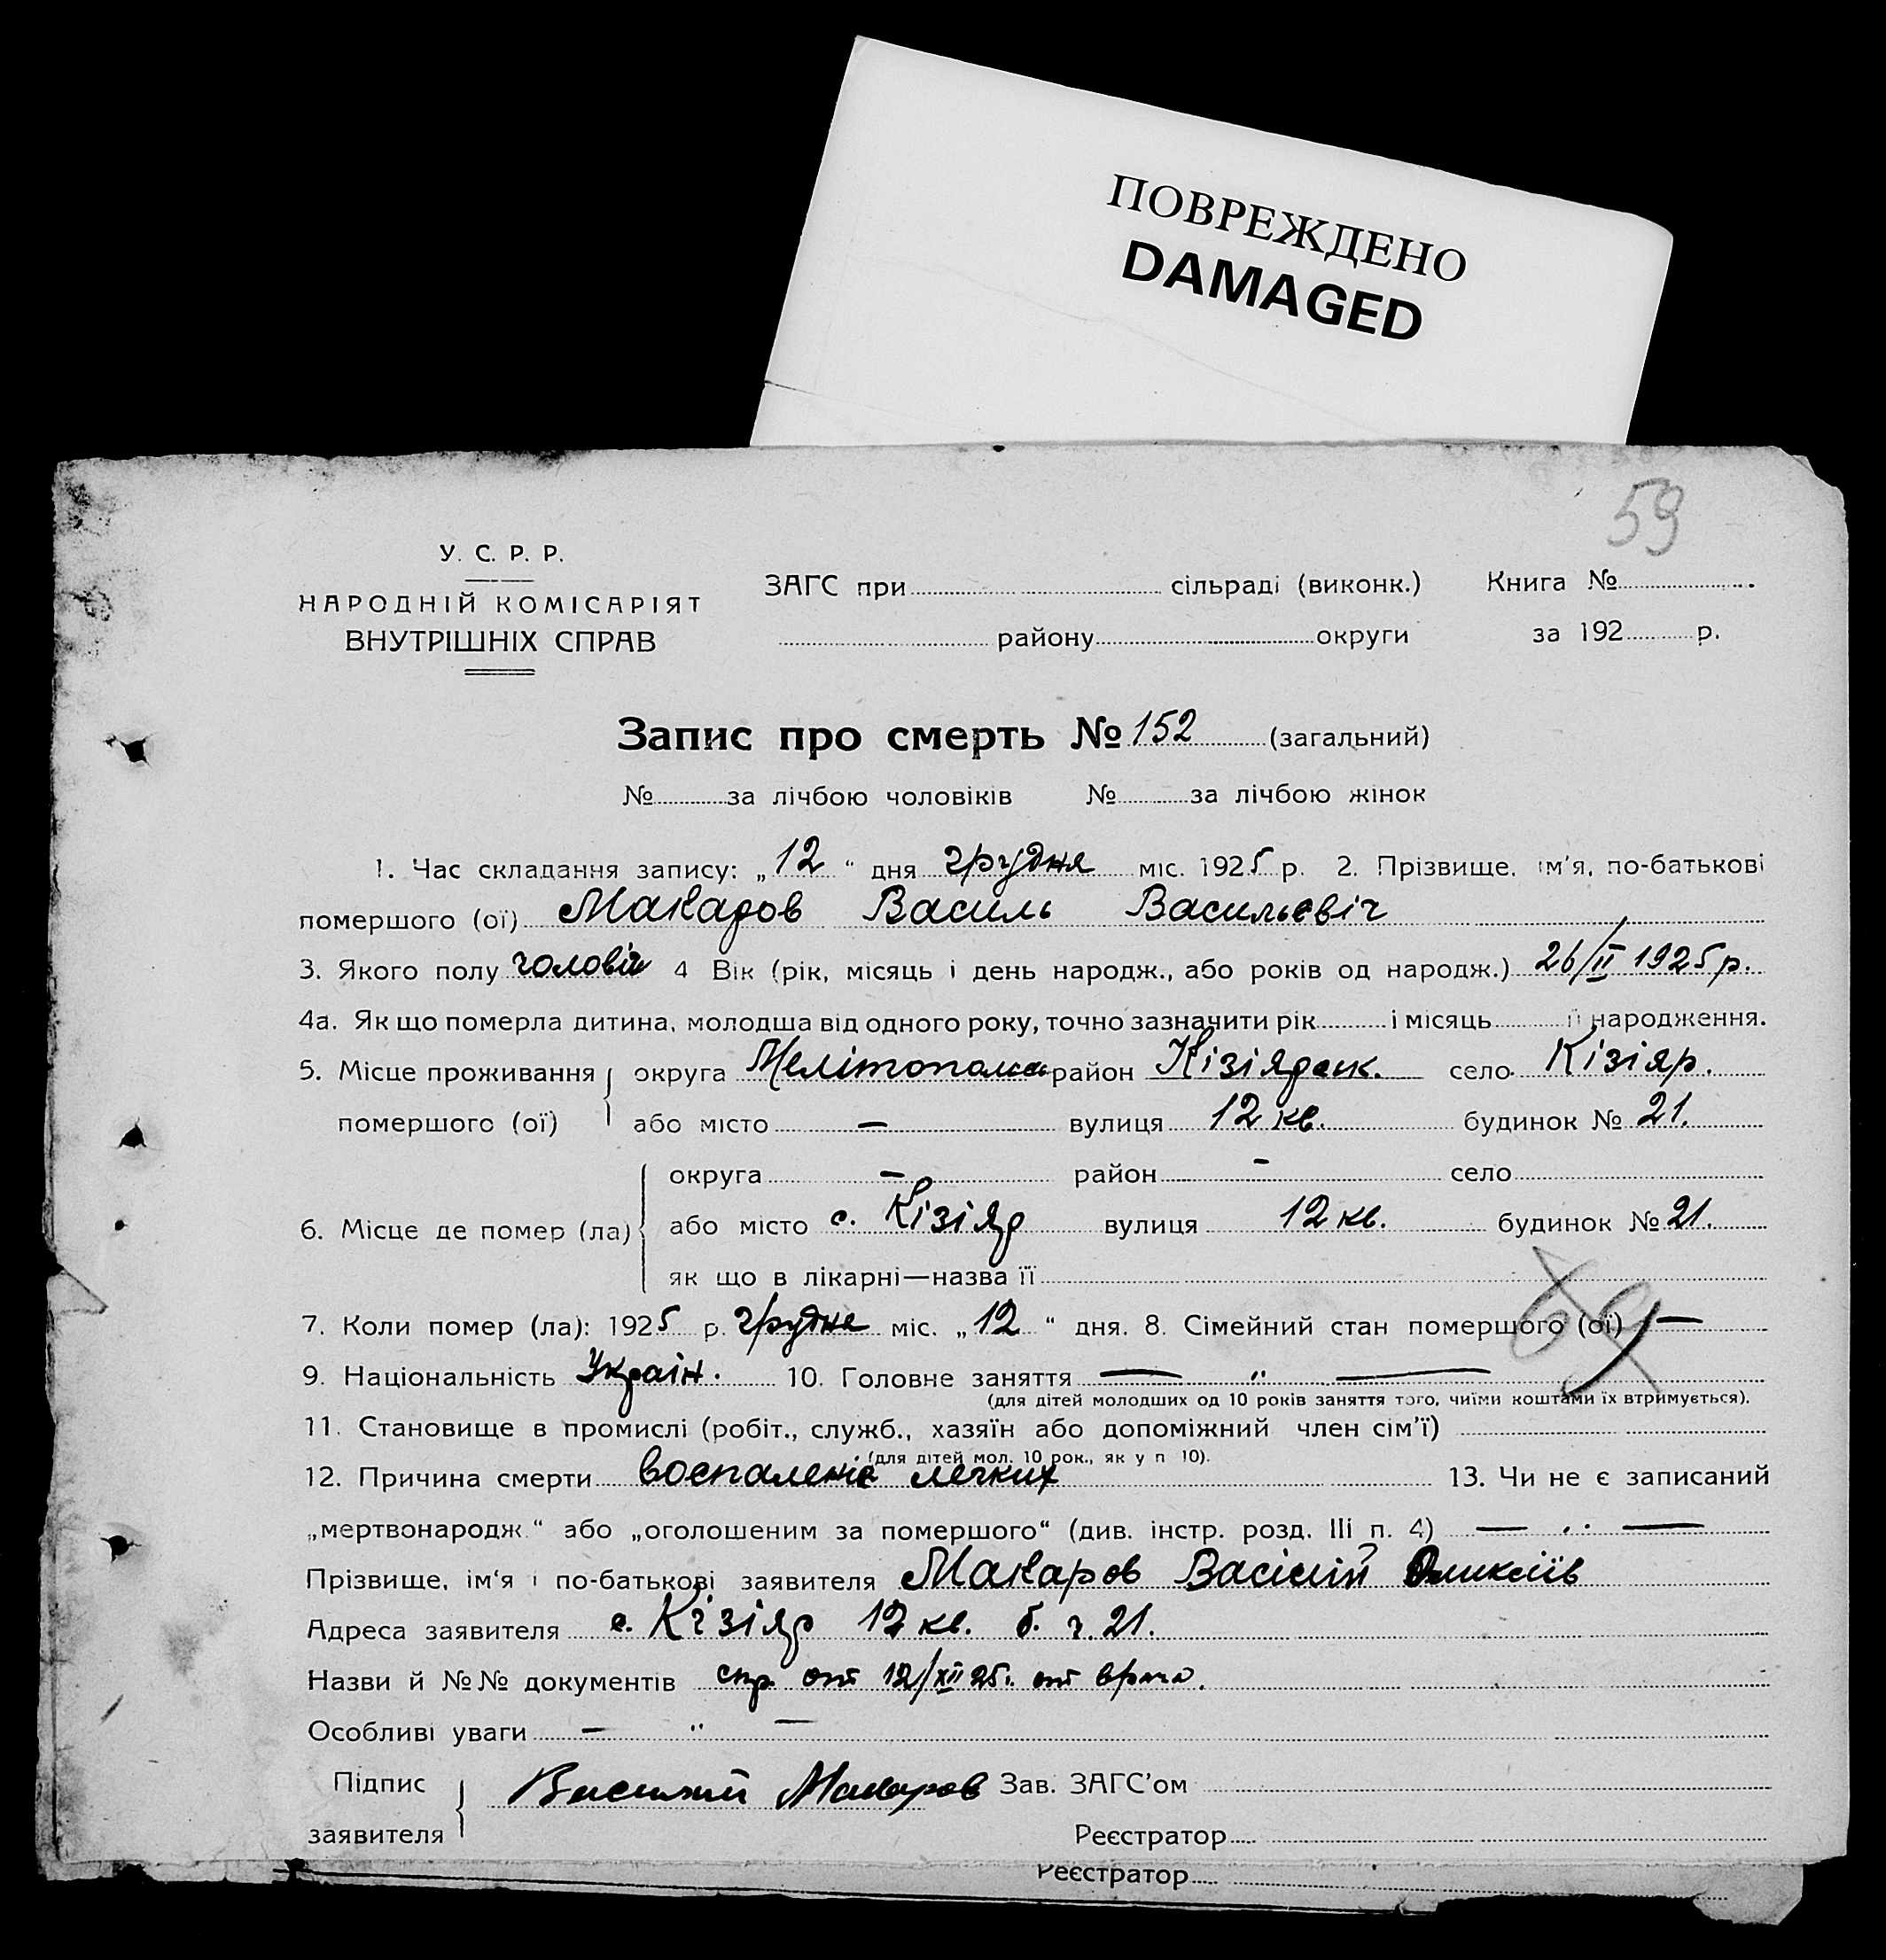 ПОВРЕЖДЕНО
DAMAGED
59
У. С. Р. Р.
НАРОДНІЙ КОМІСАРІЯТ
ВНУТРІШНІХ СПРАВ
ЗАГС при сільраді (виконк.) Книга №
району округи за 192 р.
Запис про смерть № 152 (загальний)
№ за лічбою чоловіків № за лічбою жінок
1. Час складання запису: „12“ дня грудня міс. 1925 р. 2. Прізвище, ім'я, по-батькові
помершого (ої) Макаров Василь Васильевіч
3. Якого полу 4 Вік (рік, місяць і день народж., або років од народж.) 26/II 1925 р.
4а. Як що померла дитина, молодша від одного року, точно зазначити рік і місяць її народження.
5. Місце проживання округа район Кізіярск. село Кізіяр.
помершого (ої) або місто — вулиця 12 кв. будинок № 21.
округа — район — село
6. Місце де помер (ла) або місто с. Кізіяр вулиця 12 кв. будинок № 21.
як що в лікарні—назва її
7. Коли помер (ла): 1925 р. грудня міс. „12“ дня. 8. Сімейний стан помершого (ої) —
9. Національність Україн. 10. Головне заняття — „ —
(для дітей молодших од 10 років заняття того, чиїми коштами їх втримується).
11. Становище в промислі (робіт., служб., хазяїн або допоміжний член сім'ї)
(для дітей мол. 10 рок., як у п 10).
12. Причина смерти воспаленіе легких 13. Чи не є записаний
„мертвонародж.“ або „оголошеним за помершого“ (див. інстр. розд. III п. 4) — „ —
Прізвище, ім'я і по-батькові заявителя Макаров Васілій
Адреса заявителя с. Кізіяр 12 кв. б. ч. 21.
Назви й №№ документів спр. от 12/XII 25г. от врача.
Особливі уваги — „ —
Підпис Василий Макаров Зав. ЗАГС'ом
заявителя Реєстратор
Реєстратор